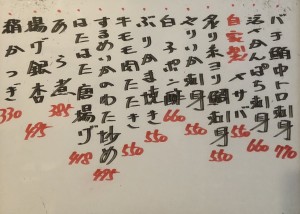 バチ鮪中トロ刺身 770
活〆かんぱち刺身 660
自家製〆サバ 550
炙り金ヨリ鯛刺身 550
やりいか刺身 550
白子ポン酢 660
ぶりかま焼き 550
牛モモ肉たたき 550
するめいかのわた炒め 495
はたはた唐揚げ 418
あら煮 385
揚げ銀杏 495
絹かつぎ 330